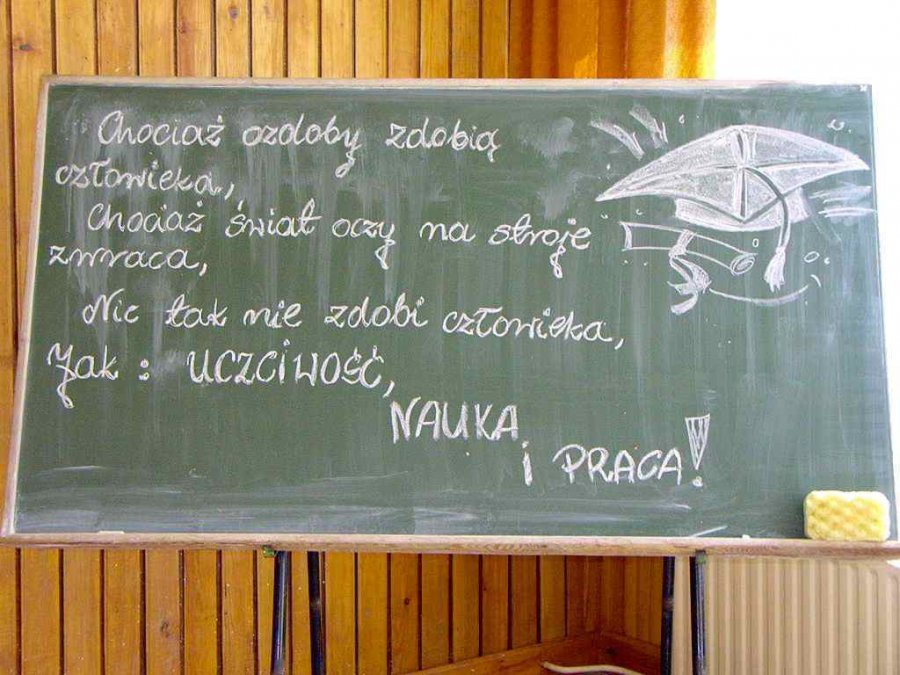 Chociaż ozdoby zdobią
człowieka,
Chociaż świat oczy na stroje
zwraca,
Nic tak nie zdobi człowieka,
Jak: UCZCIWOŚĆ,
NAUKA
i PRACA!